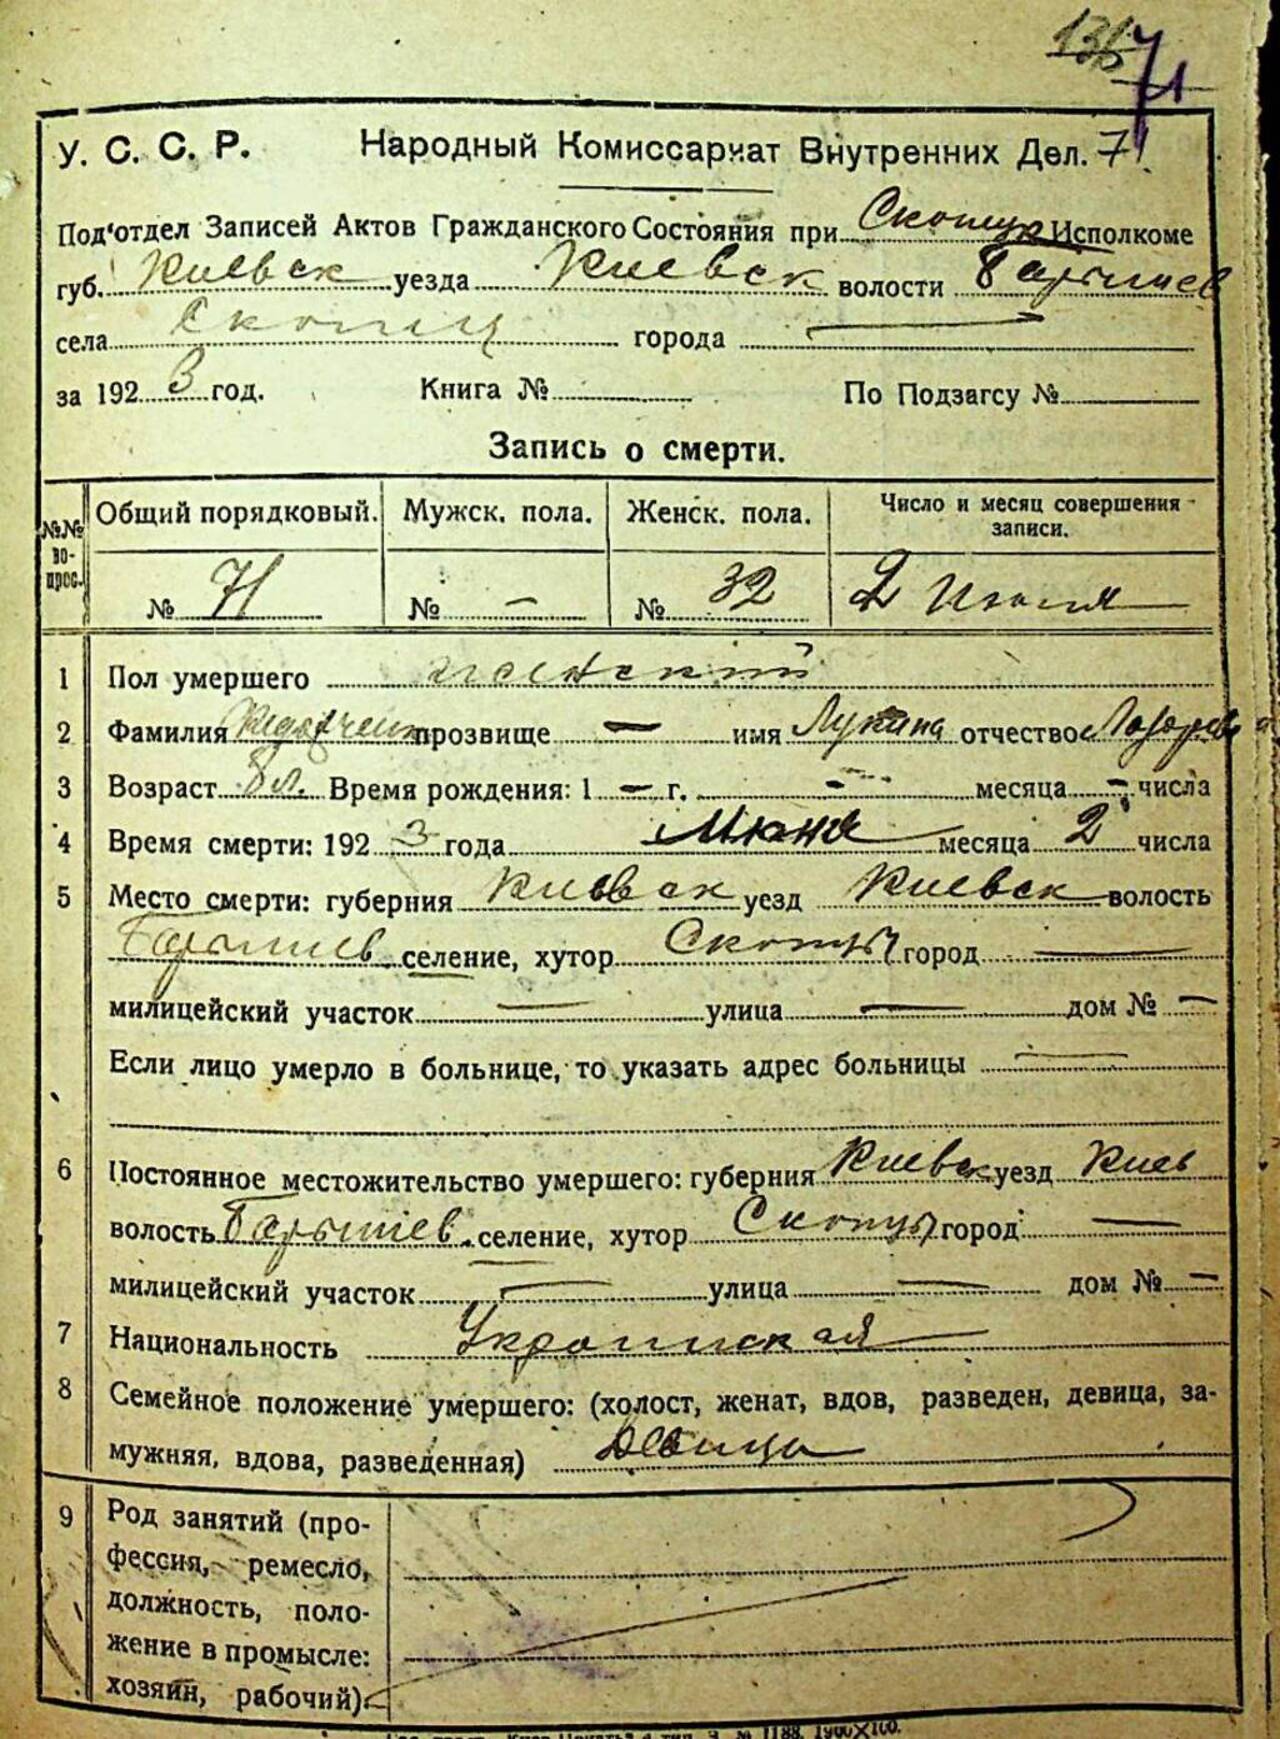 71
У. С. С. Р. Народный Комиссариат Внутренних Дел. 71
Под'отдел Записей Актов Гражданского Состояния при Скопцк Исполкоме
губ. Киевск уезда Киевск волости Барышев
села Скопцы города —
за 1923 год. Книга № По Подзагсу №
Запись о смерти.
№№ вопрос. Общий порядковый. Мужск. пола. Женск. пола. Число и месяц совершения записи.
№ 71 № – № 32 2 Июня
1 Пол умершего женский
2 Фамилия прозвище — имя отчество
3 Возраст 8 л. Время рождения: 1 — г. — месяца — числа
4 Время смерти: 1923 года Июня месяца 2 числа
5 Место смерти: губерния Киевск уезд Киевск волость
Барышев. селение, хутор Скопцы город —
милицейский участок — улица — дом № —
Если лицо умерло в больнице, то указать адрес больницы —
6 Постоянное местожительство умершего: губерния Киевск уезд Киев
волость Барышев. селение, хутор Скопцы город —
милицейский участок — улица — дом № —
7 Национальность Украинская
8 Семейное положение умершего: (холост, женат, вдов, разведен, девица, за-
мужняя, вдова, разведенная) Девица
9 Род занятий (про-
фессия, ремесло,
должность, поло-
жение в промысле:
хозяин, рабочий).